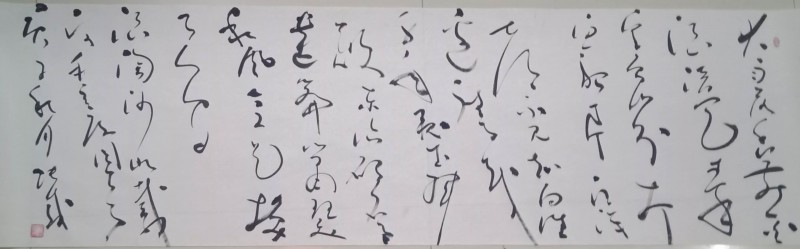 大雨落幽燕白
浪滔天秦
皇岛外打
鱼船一片汪洋
都不见知向谁
边往事越
千年魏武挥
鞭东临碣石有
遗篇萧瑟
秋风今又是换
了人间
浪淘沙北戴
河毛主席